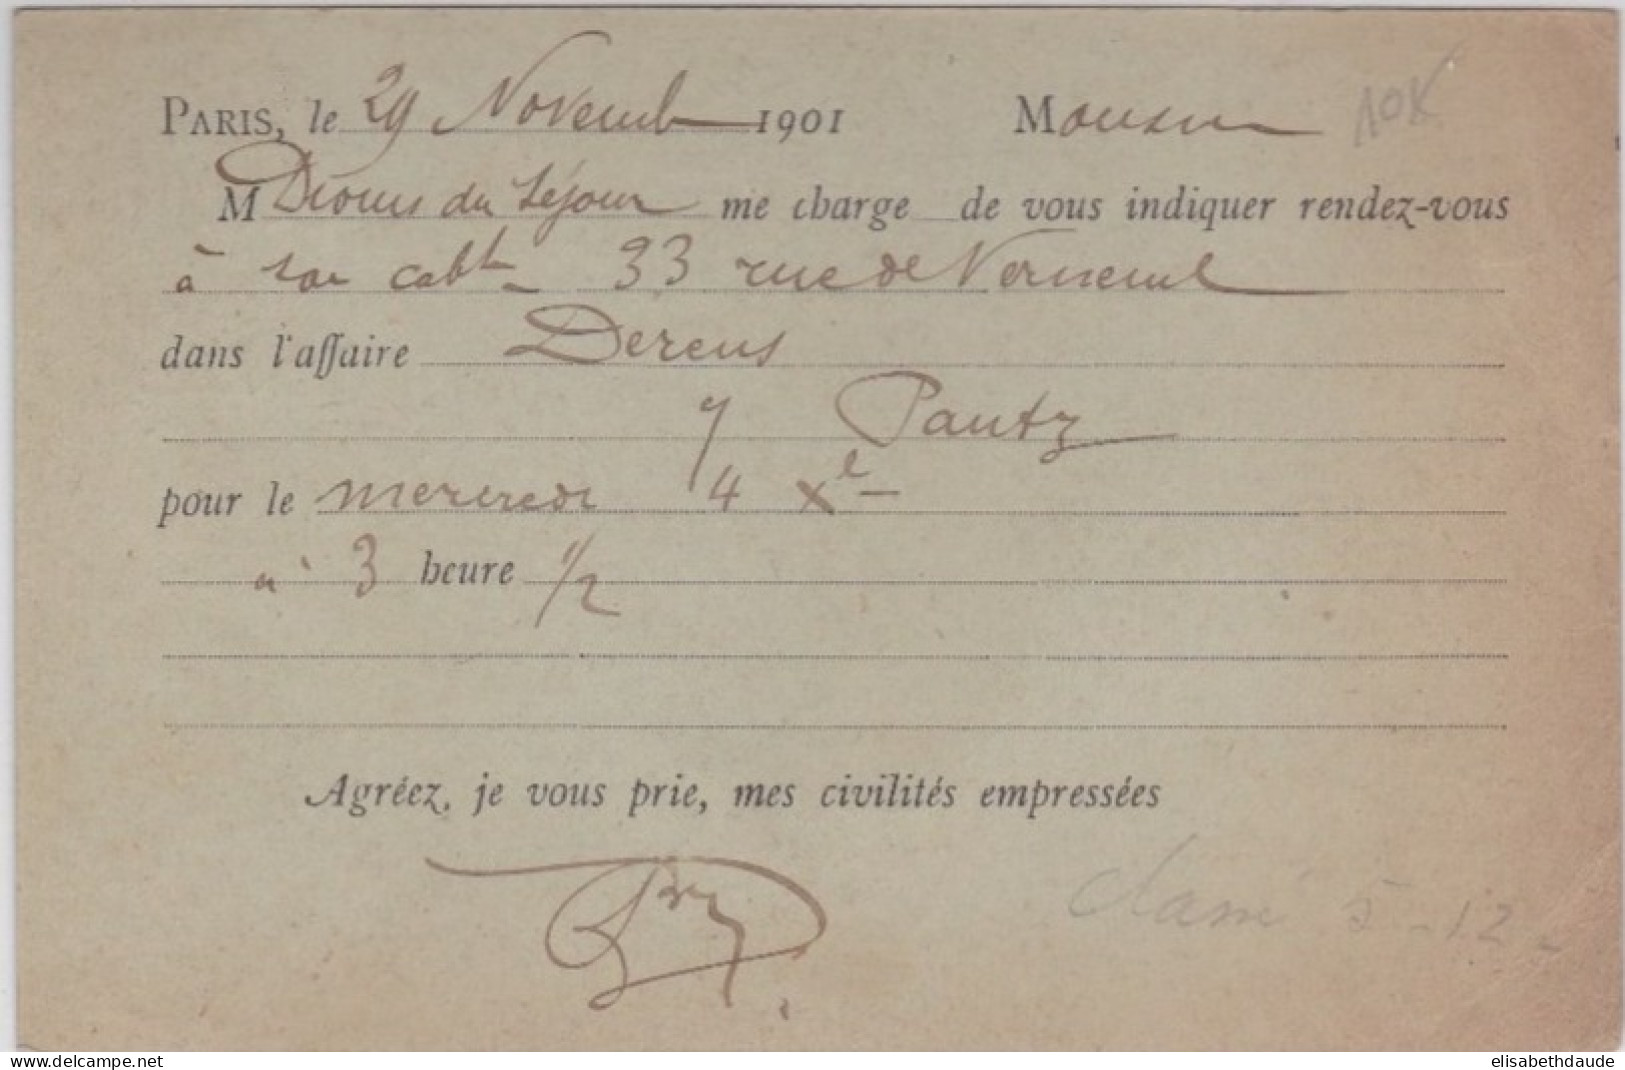 PARIS, le 29 Novemb 1901 Monsieur 10K
M Drouus du Séjour me charge de vous indiquer rendez-vous
à son cabt 33 rue de Verneuil
dans l'affaire Dereus
Pautz
pour le mercredi 4 Xe
a 3 heure 1/2
Agréez, je vous prie, mes civilités empressées
classé 5-12
www.delcampe.net elisabethdaude